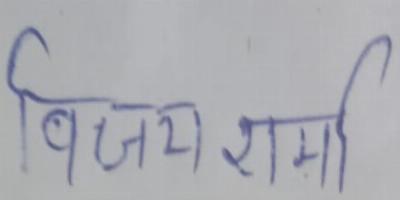 विजय शर्मा